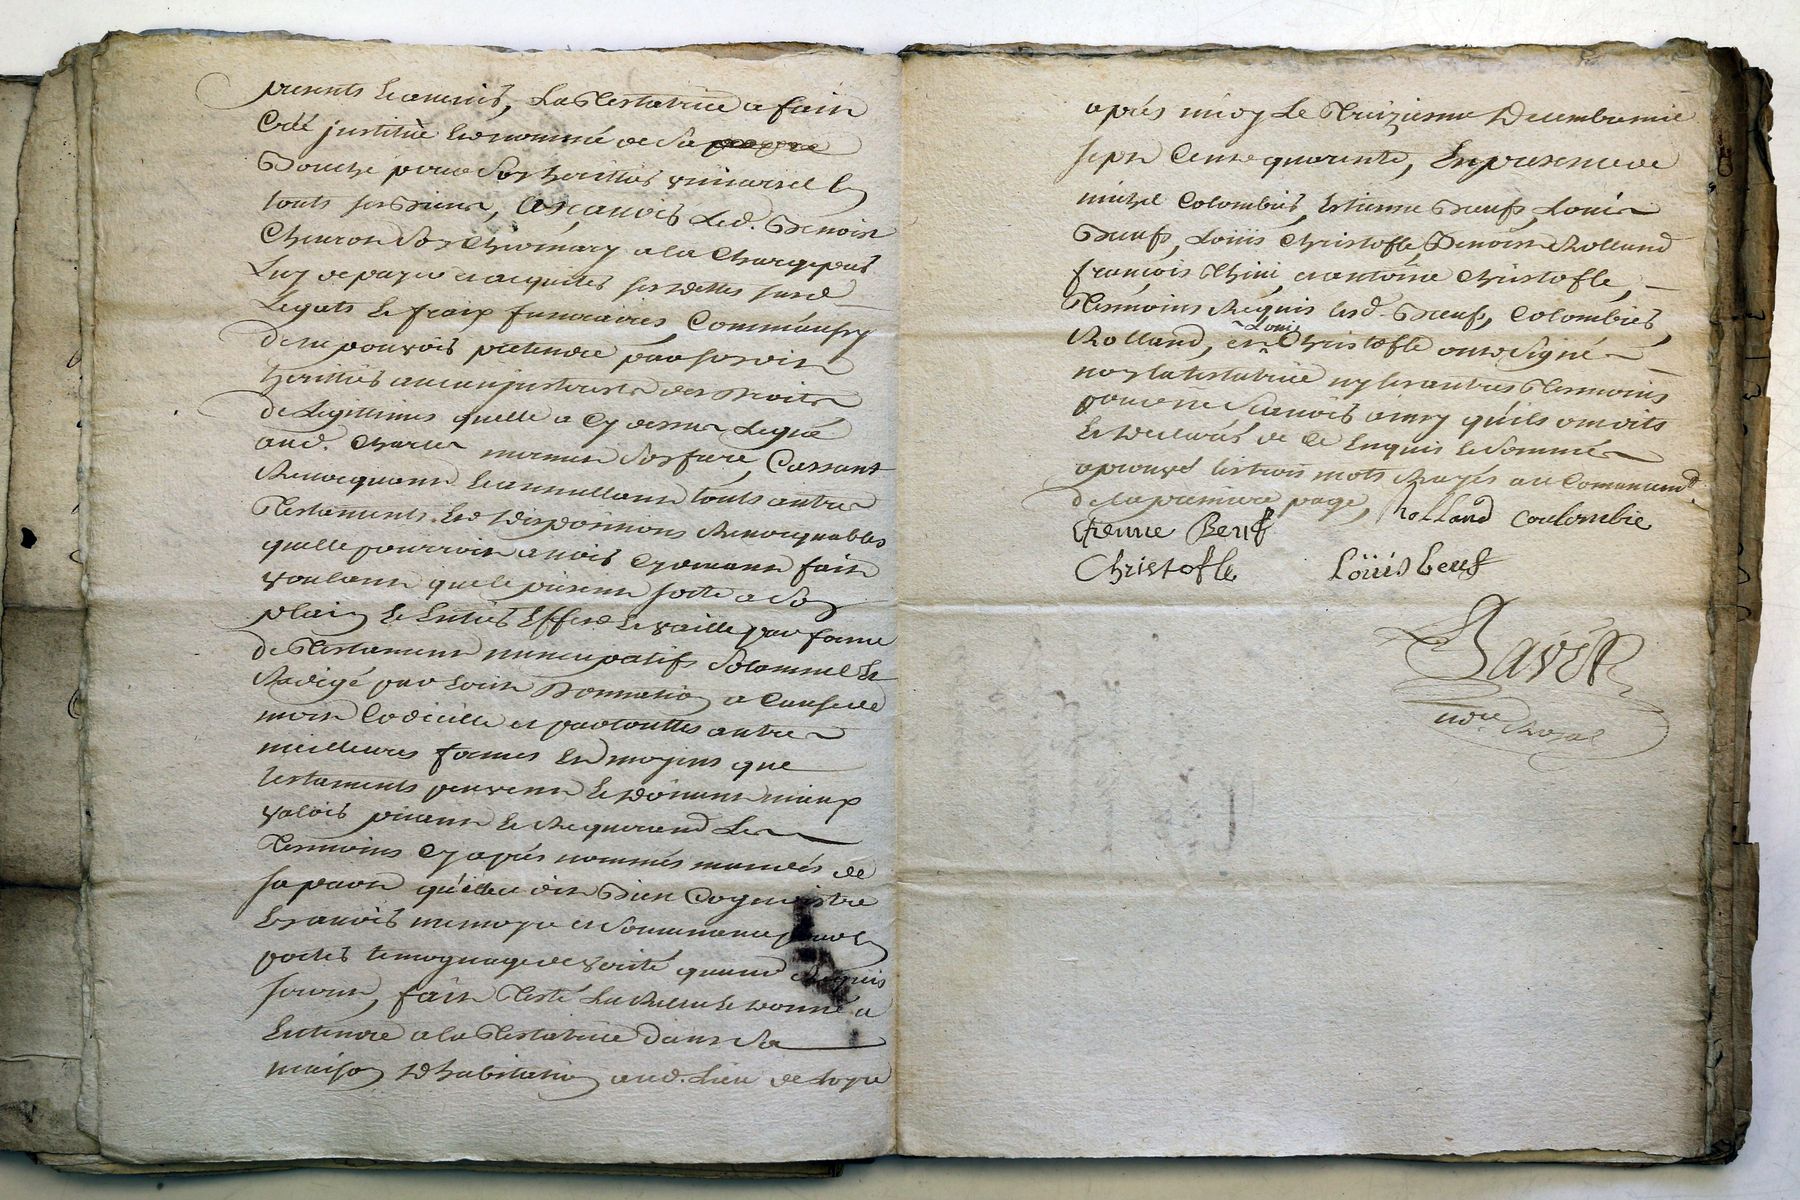 presents et avenir, La Testatrice a fait
Créé justitué et nommé de sa propre
Bouche pour son heritier universel
touts ses Biens, Led. Benoist
Cheuron Son à la Charge par
Luy de payer et acquiter ses dettes
Legats et fraix funeraires, Comm'aussy
de ne pouvoir pretendre par sond.
heritier aucun des droits
de Legitimes quelle a Cy dessus Legué
aud. Charles mermier son frere, Cassant
Revocquant et annullant touts autres
Testaments et dispositions Revocquables
quelle pourroit avoir Cy devant fait
voulant que le present sorte a son
plain et Entier Effect et vaille par forme
de Testament nuncupatif solomnel et
Redigé par Ecrit Donnation a Cause de
mort Codicille et par touttes autres
meilleures formes et moyens que
testaments peuvent et doivent mieux
valoir priant et Requerant Les
Tesmoins Cy après nommés mandés de
sa part qu'elle dit Bien Cognoistre
En avoir memoyre et souvenance pour en
porter temognage de verité quand Requis
seront, fait Testé Lu Releu et donné a
Entendre a la Testatrice dans sa
maison d'habitation aud. Lieu de
après midy Le Treizieme Decembre mil
sept Cent quarente, En presence de
michel Colombier, Estienne Beuf, Louis
Beuf, Loüis Christofle, Benoist Rolland
françois Thiui, et antoine Christofle,
Tesmoins Requis lesd. Beuf, Colombier,
Rolland, et Louis Christofle ont signé
non la testatrice ny les autres Tesmoins
pour ne sçavoir ainsy qu'ils ont dits
et declarés de Ce Enquis et sommés
aprouvé les trois mots Rayés au Comencemt
de la premiere page, Rolland Coulombie
Etienne Beuf
Christofle Loüis beuf
Savet
nore Royal